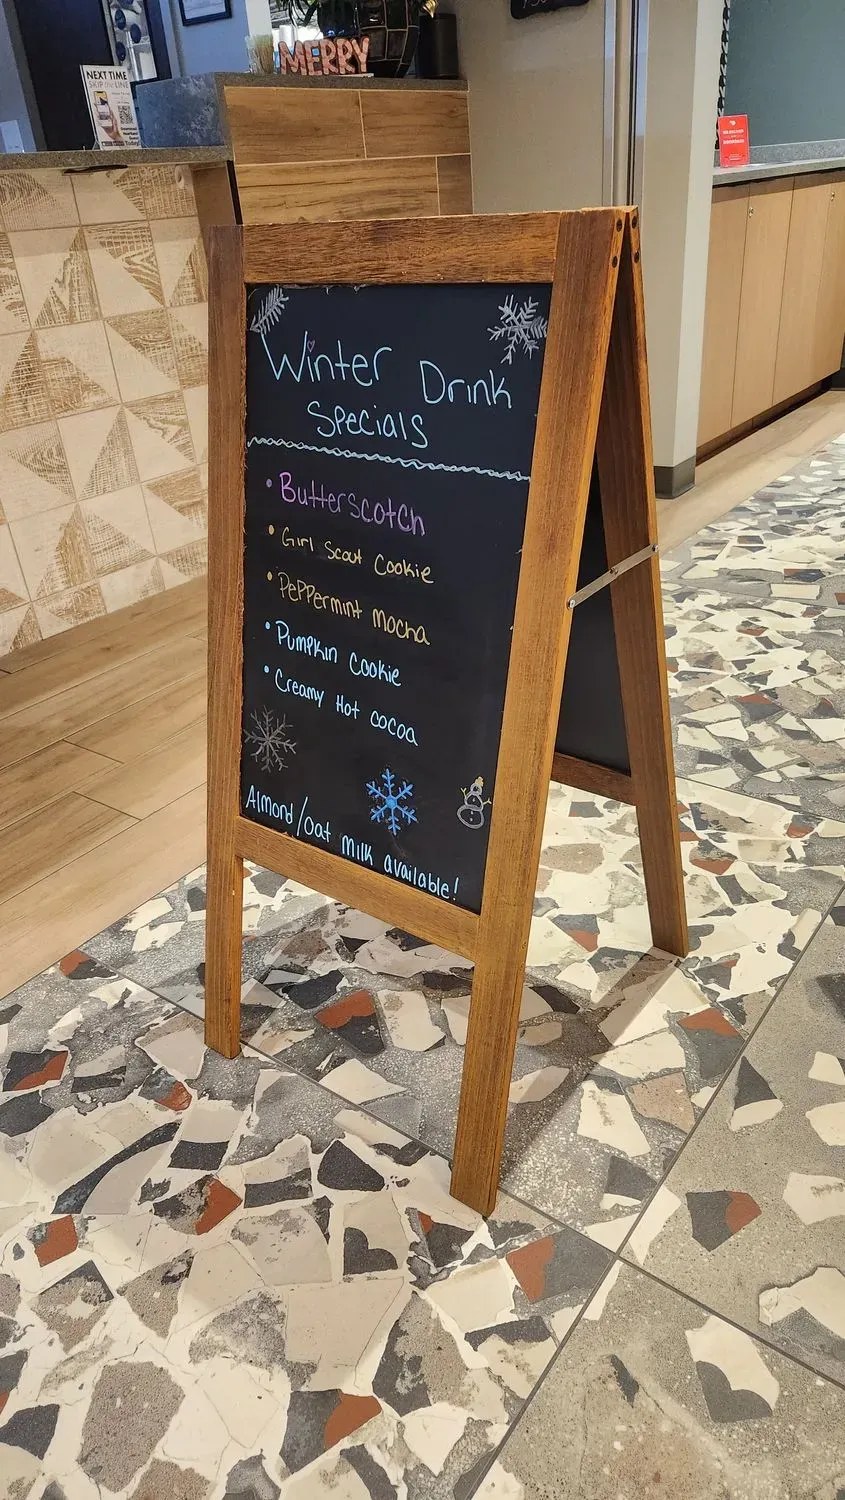 MERRY
NEXT TIME
SKIP the LINE
Winter Drink
Specials
• Butterscotch
• Girl Scout Cookie
• Peppermint Mocha
• Pumpkin Cookie
• Creamy Hot cocoa
Almond/Oat milk available!